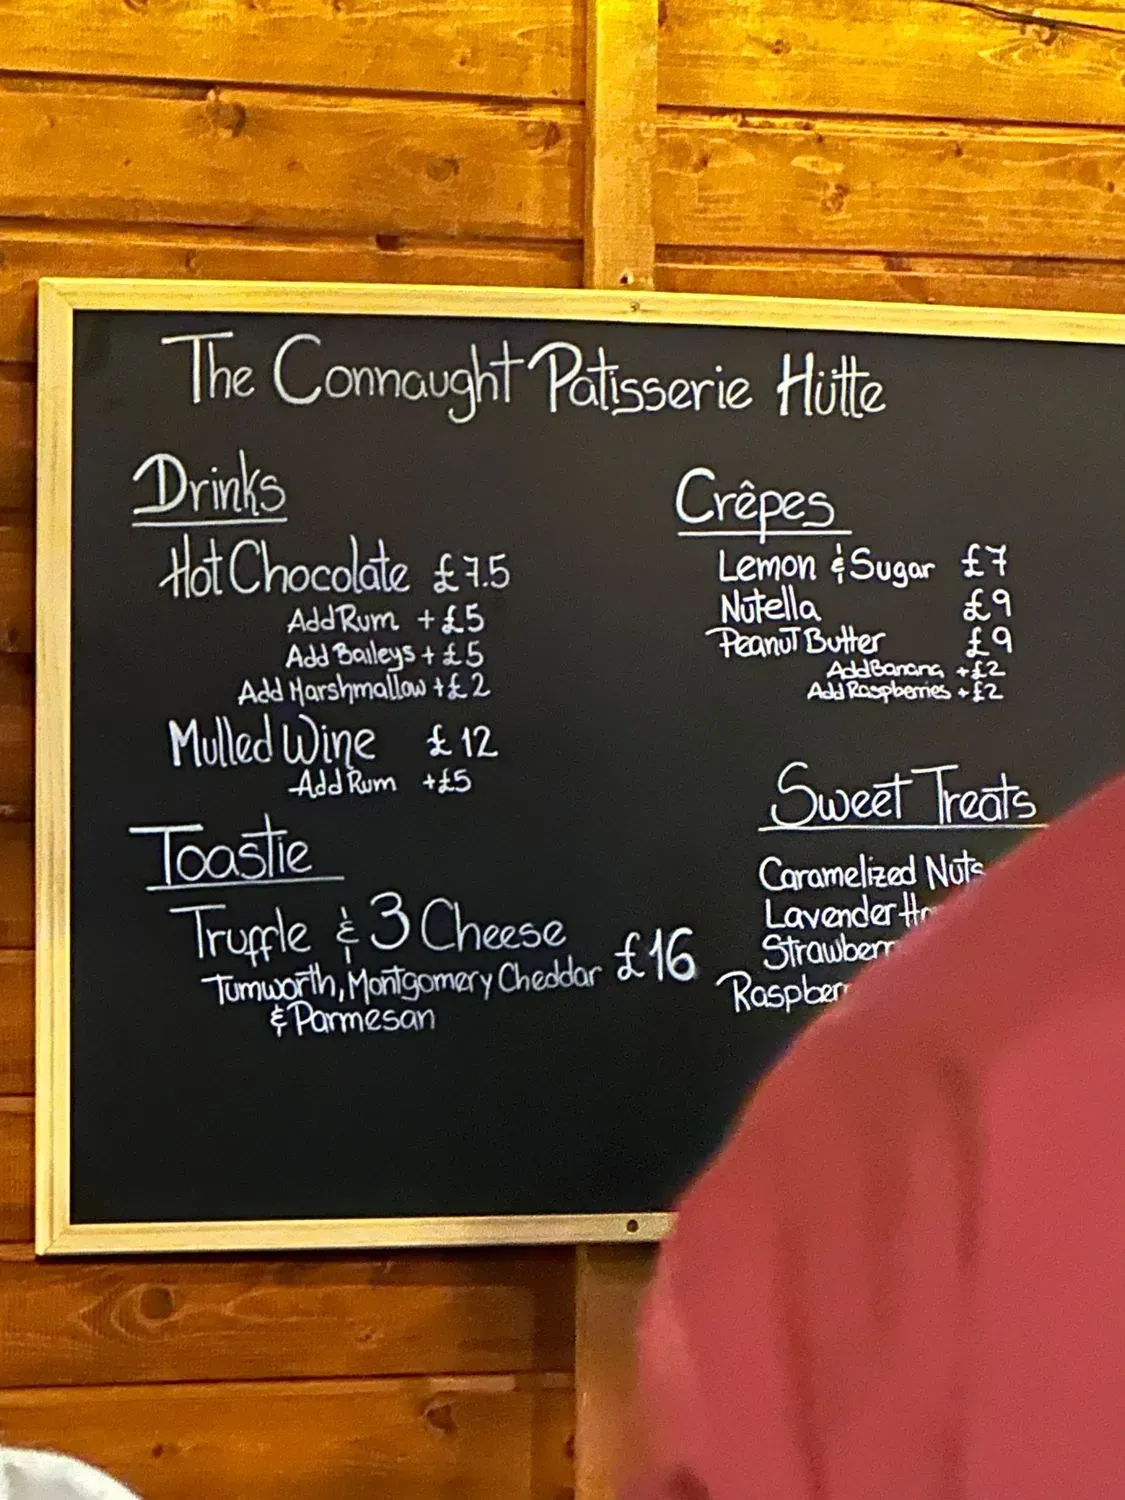 The Connaught Patisserie Hütte
Drinks
Hot Chocolate £7.5
Add Rum + £5
Add Baileys + £5
Add Marshmallow + £2
Mulled Wine £12
Add Rum + £5
Toastie
Truffle & 3 Cheese £16
Tumworth, Montgomery Cheddar
& Parmesan
Crêpes
Lemon & Sugar £7
Nutella £9
Peanut Butter £9
Add Banana + £2
Add Raspberries + £2
Sweet Treats
Caramelized Nuts
Lavender